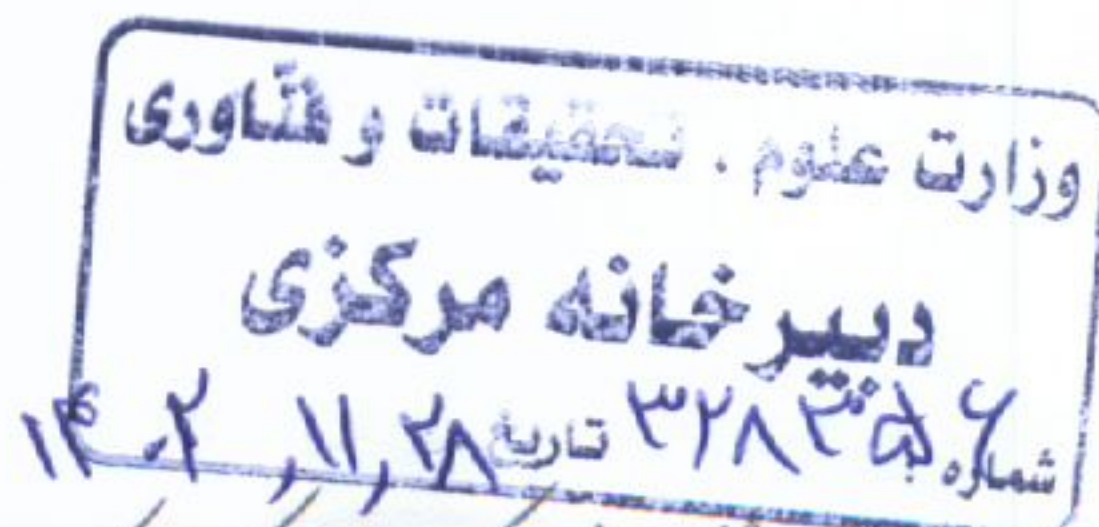 وزارت علوم . تحقیقات و فنّاوری
دبیرخانه مرکزی
شماره ۳۲۸۳۵۶ تاریخ ۱۴۰۲,۱۱,۲۸